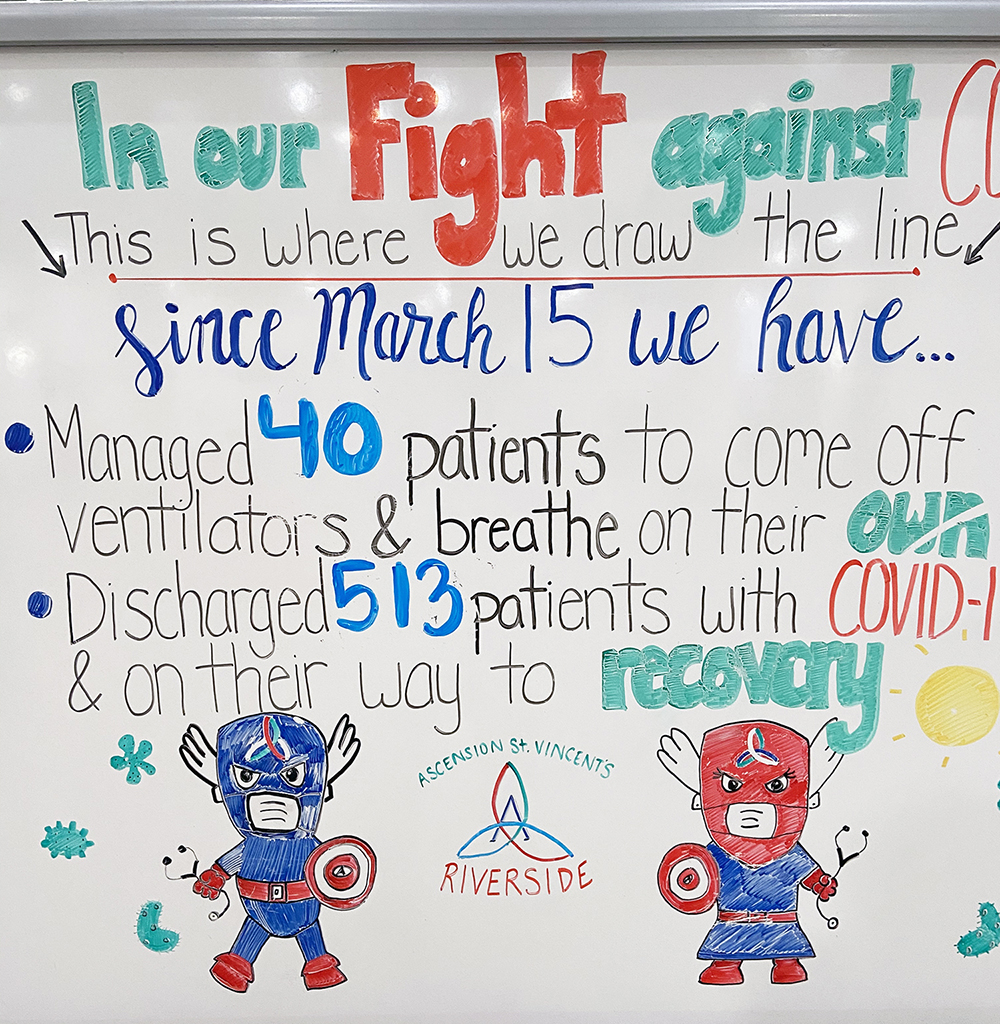 In our Fight against CO
This is where we draw the line
since March 15 we have...
Managed 40 patients to come off
ventilators & breathe on their own
Discharged 513 patients with COVID-1
& on their way to recovery
ASCENSION St. VINCENT'S
A
RIVERSIDE